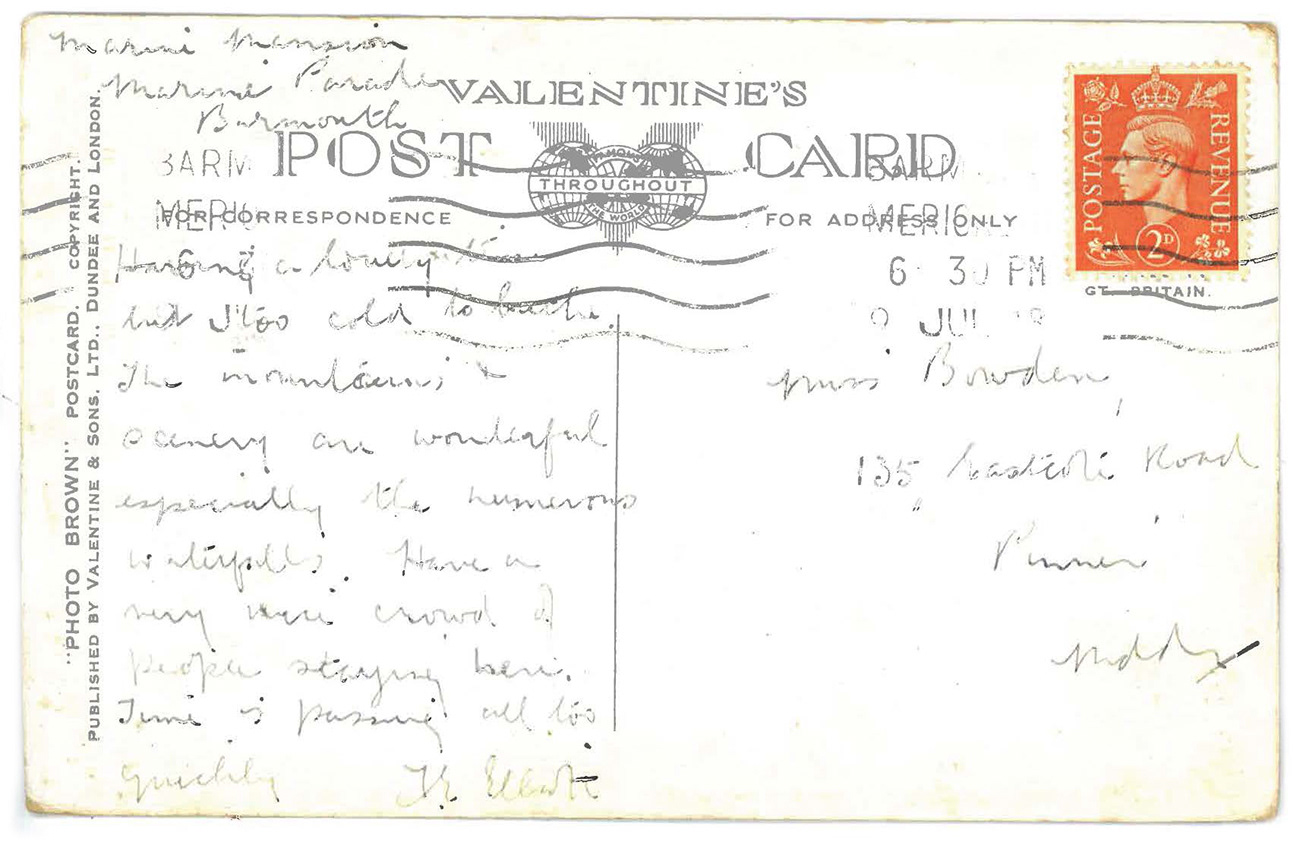 Marine Mansion
Marine Parade
Barmouth
VALENTINE'S
POST CARD
FAMOUS
THROUGHOUT
THE WORLD
FOR CORRESPONDENCE
FOR ADDRESS ONLY
BARM
MERIO
6
BARM
MERIO
6 30 PM
9 JUL
POSTAGE
REVENUE
2D
GT. BRITAIN.
"PHOTO BROWN" POSTCARD. COPYRIGHT.
PUBLISHED BY VALENTINE & SONS, LTD., DUNDEE AND LONDON.
Having a lovely time
but too cold to bathe.
The mountains &
scenery are wonderful
especially the numerous
waterfalls. Have a
very nice crowd of
people staying here.
Time is passing all too
quickly
Miss Bowden,
135 Eastcote Road
Pinner
Middx